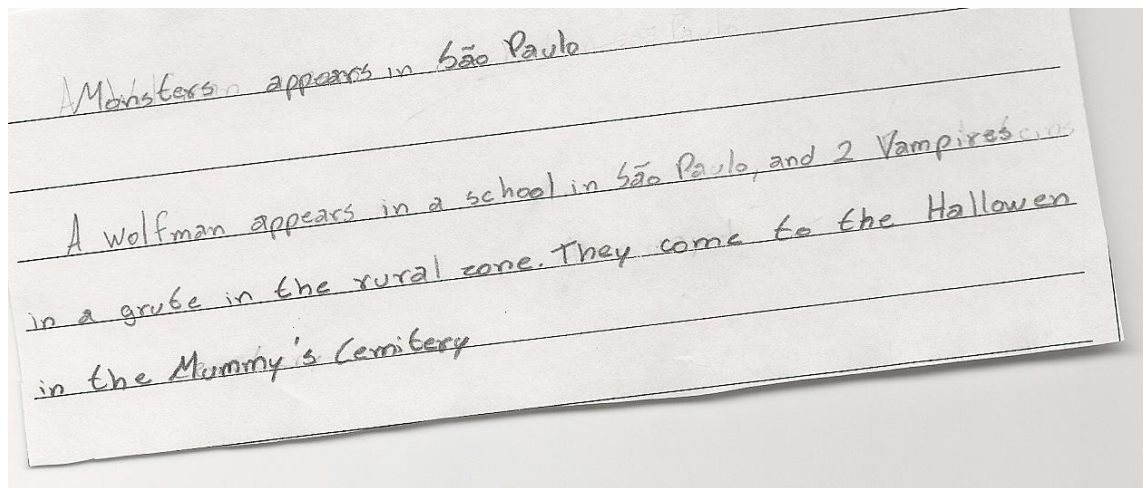 Monsters appears in São Paulo
A wolfman appears in a school in São Paulo, and 2 Vampires
in a grute in the rural zone. They come to the Hallowen
in the Mummy's Cemitery